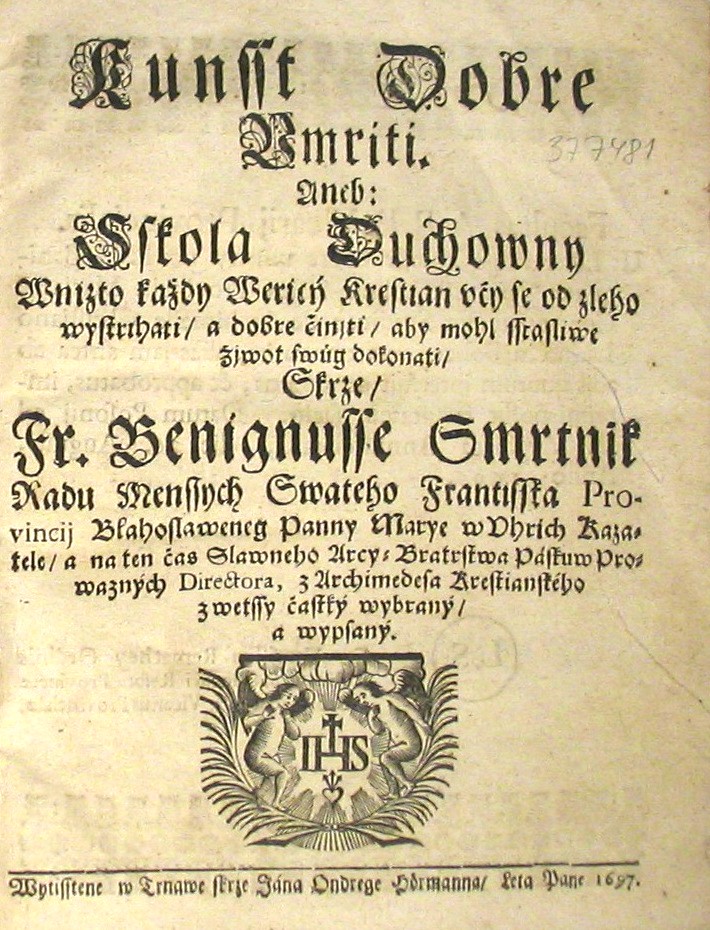 Kunsſt Dobre
Vmriti.
377481
Aneb:
Sſkola Duchowny
Wnižto každy Wericý Kreſtian včy ſe od zleho
wyſtrihati/ a dobre činiti/ aby mohl ſſtaſliwe
život ſwúg dokonati/
Skrze/
Fr. Benignuſſe Smrtnik
Radu Menſſych Swateho Frantiſſka Pro-
vincij Blahoſlaweneg Panny Marye w Vhrich Kaza-
tele/ a na ten čas Slawneho Arcy-Bratrſtwa Páſkuw Pro-
wazných Directora, z Archimedesa Kreſtianſkého
z wetſſy čaſtký wybraný/
a wypſaný.
IHS
Wytiſſtene w Trnawe ſkrze Jána Ondrege Hörmanna/ Leta Pane 1697.